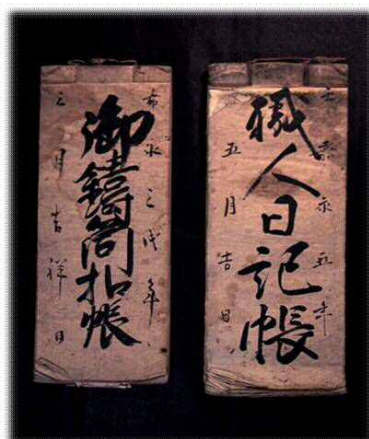 嘉永五年
職人日記帳
五月吉日
嘉永三戌年
御鑄筒扣帳
三月吉祥日